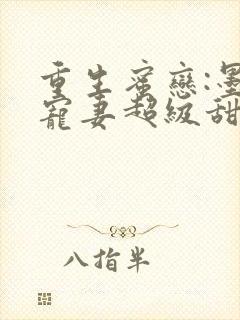 重生蜜戀:墨
寵妻超級甜
八指半